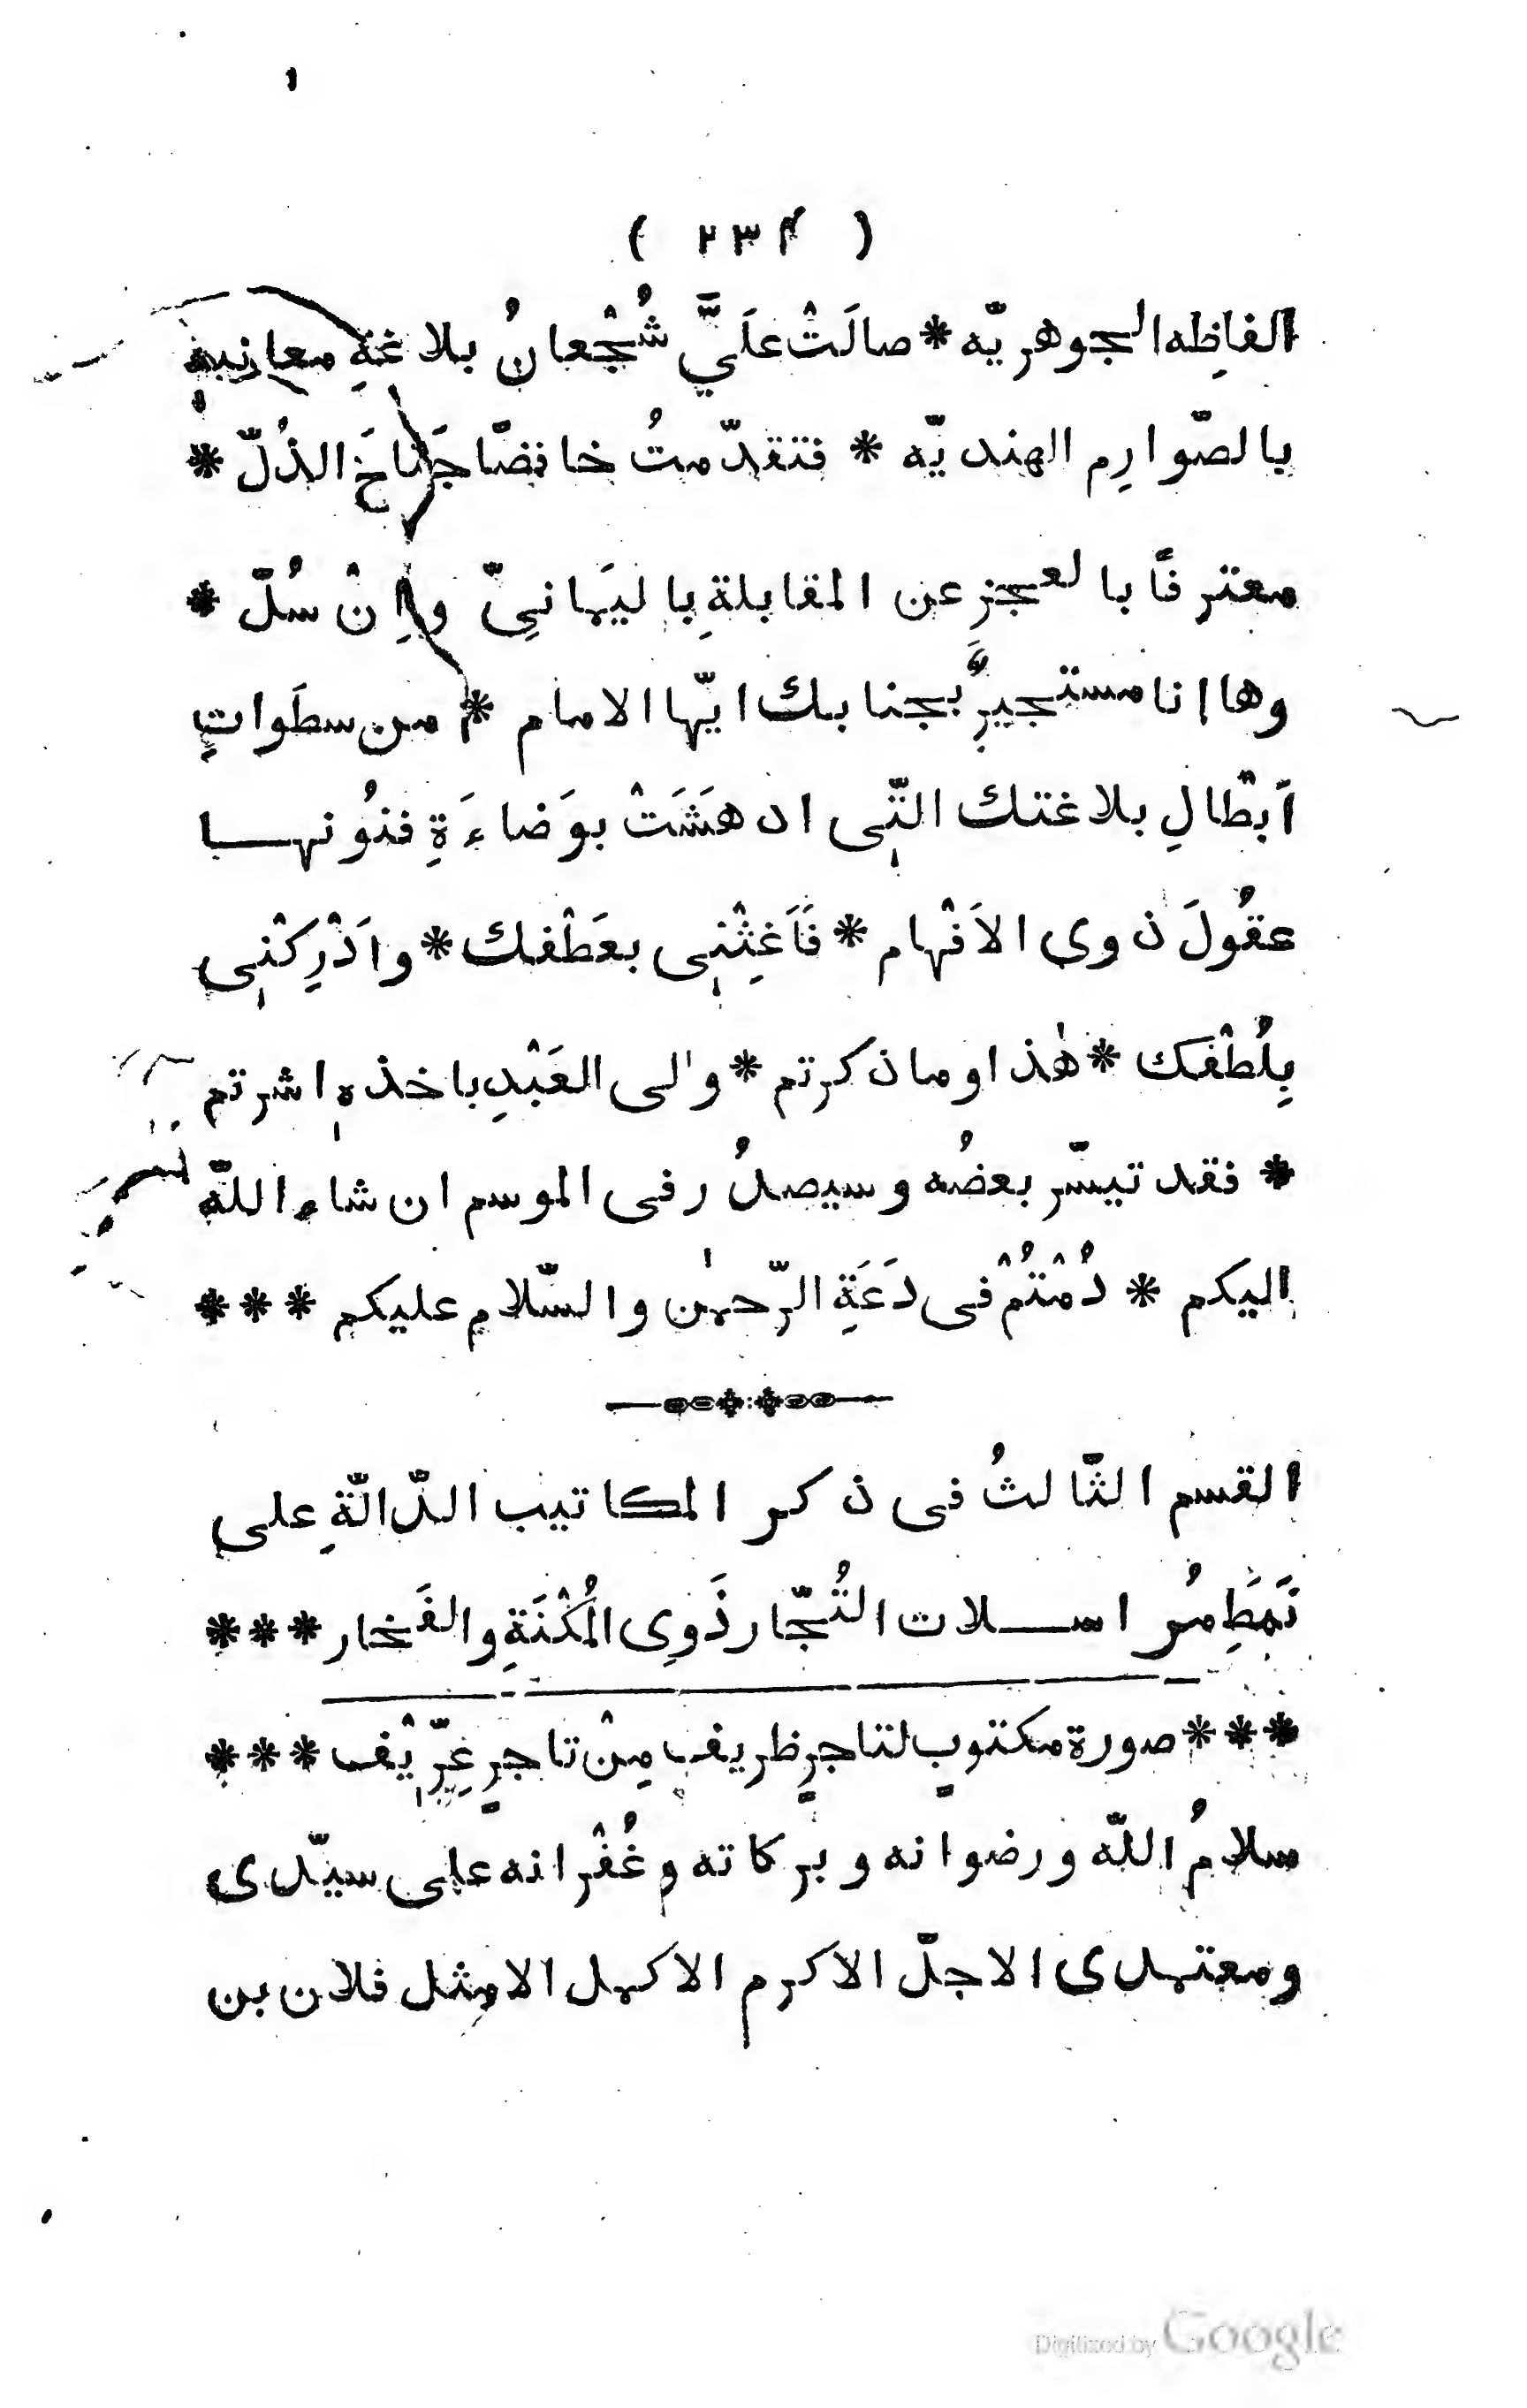 ( ٢٣۴ )
الفاظِه الجوهريّه * صالَتْ علَيَّ شُجْعانُ بلاغةِ معانيهِ
بالصّوارِم الهنديّه * فتقدّمتُ خافضًا جَناحَ الذُلّ *
معترفًا بالعجز عن المقابلةِ باليَمانىّ واِنْ سُلّ *
وها انا مستجيرٌ بجنابك ايّها الامام * من سطَواتِ
اَبْطالِ بلاغتك الّتى ادهَشَتْ بوَضاءَةِ فنُونهــا
عقُولَ ذوى الاَفْهام * فَاَغِثْنِى بعَطْفك * واَدْرِكْنِى
بِلُطْفك * هٰذا وما ذكرتم * والى العَبْدِ باخذهِ اشرتم
* فقد تيسّر بعضُه وسيصدُر فى الموسم ان شاء اللّه
اليكم * دُمْتُمْ فى دَعَةِ الرّحمٰن والسّلام عليكم * * *
القسم الثّالثُ فى ذكر المكاتيب الدّالّةِ على
نَمَطِ مُراســلات التُجّار ذَوِى المُكْنَةِ والفَخار * * *
* * * صورة مكتوبٍ لتاجرٍ ظريف مِنْ تاجرٍ غِرّيْف * * *
سلامُ اللّه ورضوانه وبركاته وغُفْرانه على سيّدى
ومعتمدى الاجلّ الاكرم الاكمل الامثل فلان بن
Digitized by Google